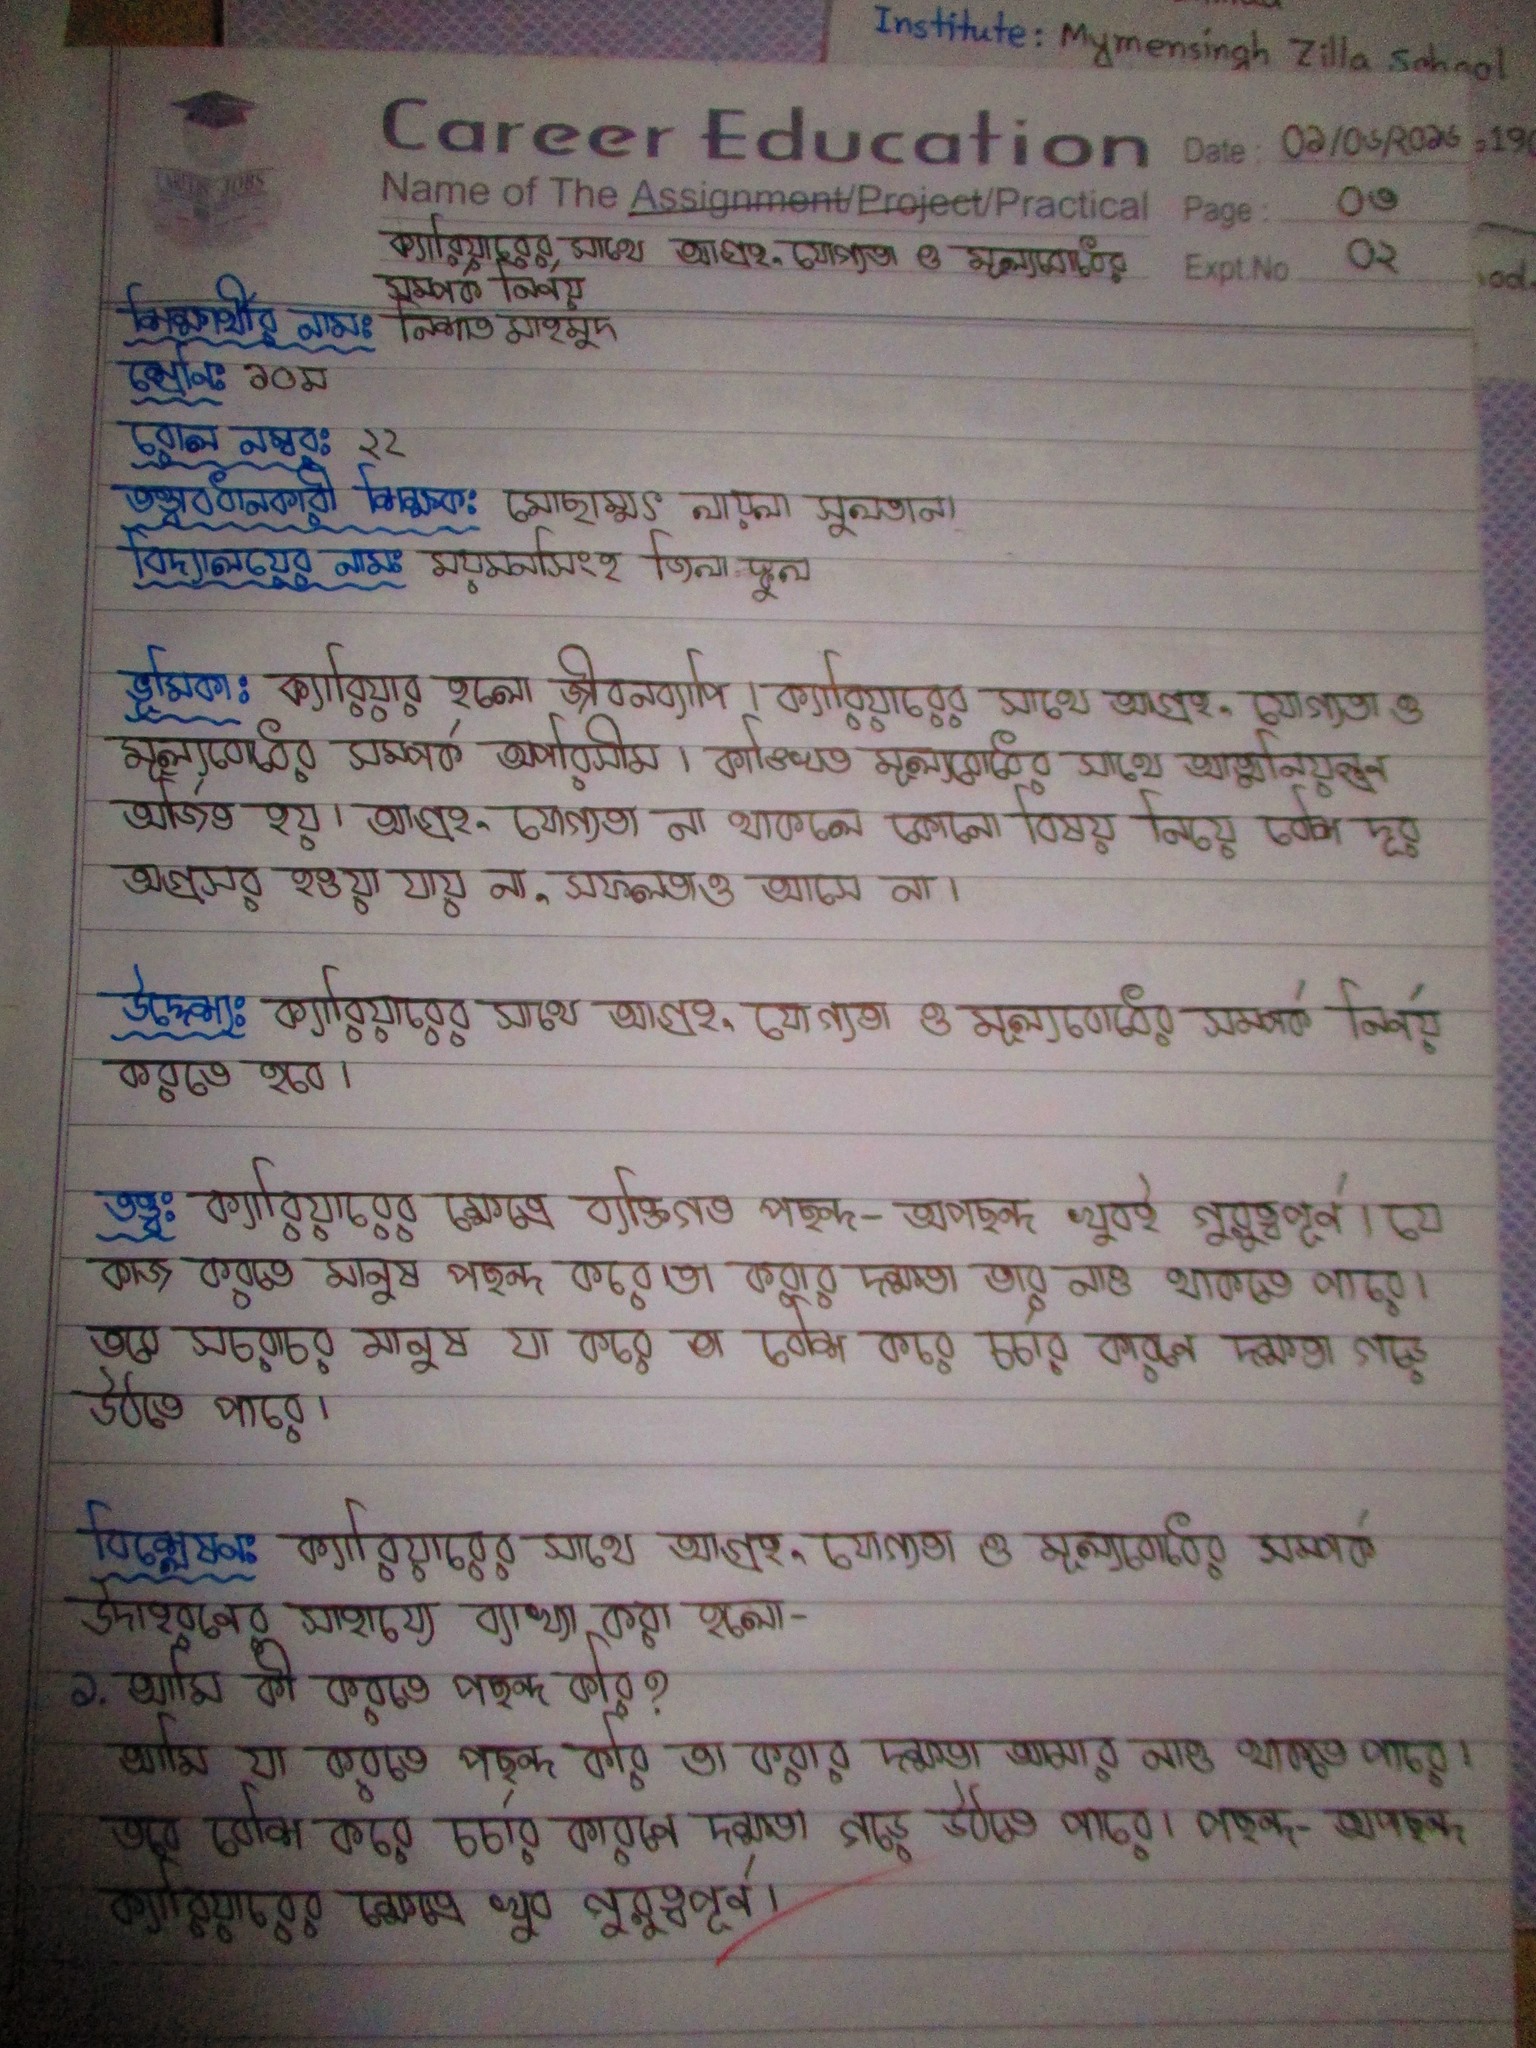 Institute: Mymensingh Zilla School
Career Education
Date:
Name of The Assignment/Project/Practical
Page: 03
ক্যারিয়ারের সাথে আগ্রহ, যোগ্যতা ও মূল্যবোধের
Expt.No ০২
সম্পর্ক নির্ণয়
শিক্ষার্থীর নামঃ নিশাত মাহমুদ
শ্রেনিঃ ১০ম
রোল নম্বরঃ ২২
তত্ত্বাবধানকারী শিক্ষকঃ মোছাম্মৎ লায়লা সুলতানা
বিদ্যালয়ের নামঃ ময়মনসিংহ জিলা স্কুল
ভূমিকাঃ ক্যারিয়ার হলো জীবনব্যাপি। ক্যারিয়ারের সাথে আগ্রহ, যোগ্যতা ও
মূল্যবোধের সম্পর্ক অপরিসীম। কাঙ্খিত মূল্যবোধের সাথে আত্মনিয়ন্ত্রন
অর্জিত হয়। আগ্রহ, যোগ্যতা না থাকলে কোনো বিষয় নিয়ে বেশি দূর
অগ্রসর হওয়া যায় না, সফলতাও আসে না।
উদ্দেশ্যঃ ক্যারিয়ারের সাথে আগ্রহ, যোগ্যতা ও মূল্যবোধের সম্পর্ক নির্ণয়
করতে হবে।
তত্ত্বঃ ক্যারিয়ারের ক্ষেত্রে ব্যক্তিগত পছন্দ-অপছন্দ খুবই গুরুত্বপূর্ণ। যে
কাজ করতে মানুষ পছন্দ করে তা করার দক্ষতা তার নাও থাকতে পারে।
তবে সচরাচর মানুষ যা করে তা বেশি করে চর্চার কারনে দক্ষতা গড়ে
উঠতে পারে।
বিশ্লেষনঃ ক্যারিয়ারের সাথে আগ্রহ, যোগ্যতা ও মূল্যবোধের সম্পর্ক
উদাহরনের সাহায্যে ব্যাখ্যা করা হলো-
১. আমি কী করতে পছন্দ করি?
আমি যা করতে পছন্দ করি তা করার দক্ষতা আমার নাও থাকতে পারে।
তবে বেশি করে চর্চার কারনে দক্ষতা গড়ে উঠতে পারে। পছন্দ-অপছন্দ
ক্যারিয়ারের ক্ষেত্রে খুব গুরুত্বপূর্ণ।